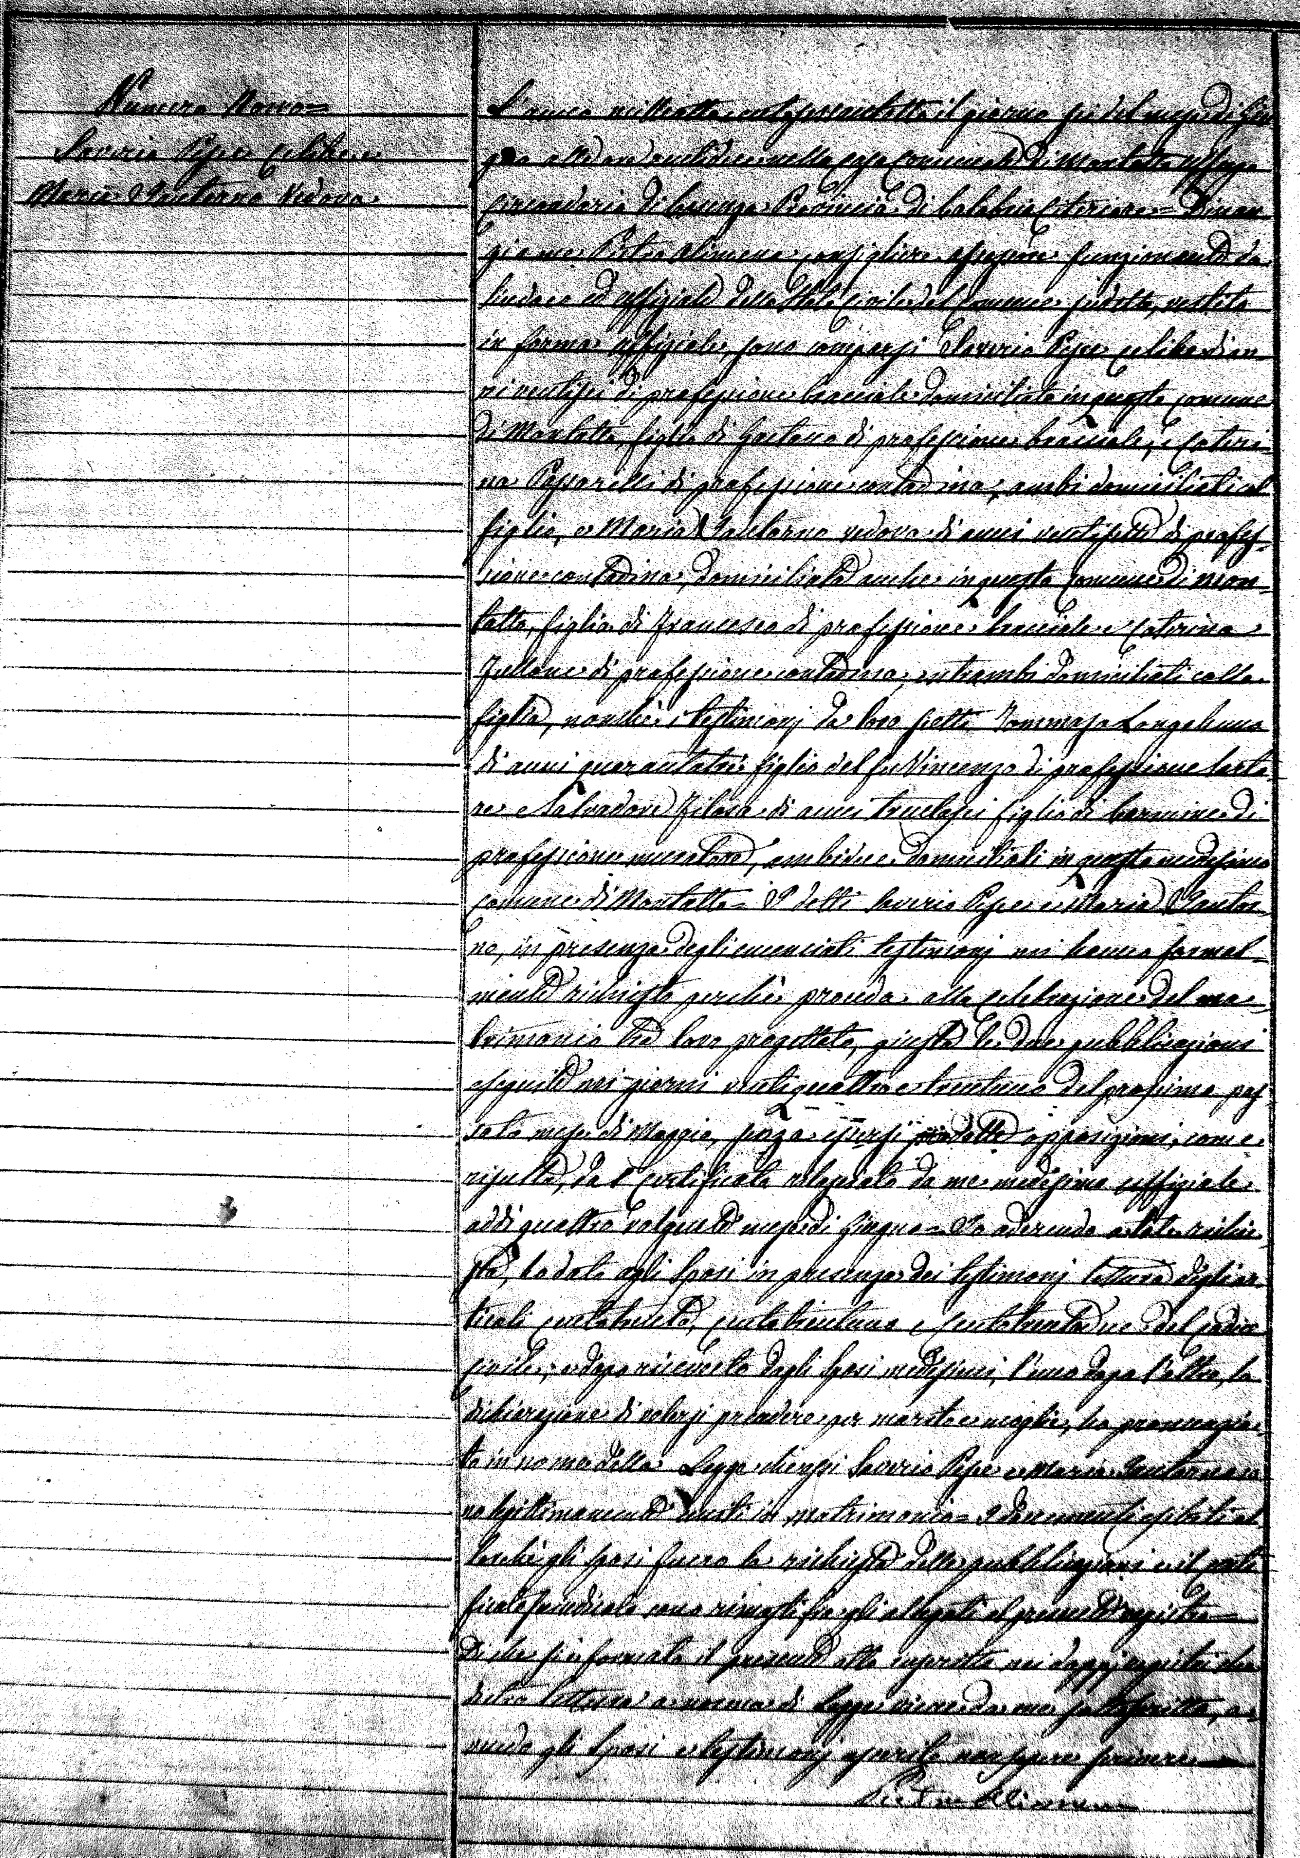 Numero Nono=
Saverio Pepe celibe e
Maria Santorno Vedova
L'anno milleottocentosessantotto il giorno sei del mese di Giu
gno alle ore undici nella casa Comunale di Montalto Uffugo
Circondario di Cosenza Provincia di Calabria Citeriore= Dinan
zi a me Pietro Alimena Consigliere assessore funzionante da
Sindaco ed Uffiziale dello Stato Civile del Comune suddetto, vestito
in forma uffiziale, sono comparsi Saverio Pepe celibe di an
ni ventisei di professione bracciale domiciliato in questo comune
di Montalto, figlio di Gaetano di professione bracciale, e Cateri
na Passarelli di professione contadina, ambi domiciliati col
figlio, e Maria Santorno vedova di anni ventisette di profes
sione contadina, domiciliata anche in questo comune di Mon
talto, figlia di Francesco di professione bracciale e Caterina
di professione contadina, entrambi domiciliati colla
figlia, nonchè i testimonj da loro scelti Tommaso Longobucco
di anni quarantatrè figlio del fu Vincenzo di professione sarto
re e Salvadore Filosa di anni trentasei figlio di Carmine di
professione muratore, ambidue domiciliati in questo medesimo
comune di Montalto= I detti Saverio Pepe e Maria Santor
no, in presenza degli enunciati testimonj mi hanno formal
mente richiesto perchè proceda alla celebrazione del ma
trimonio tra loro progettato, giusta le due pubblicazioni
eseguite nei giorni ventiquattro e trentuno del prossimo pas
sato mese di Maggio, senza essersi prodotte opposizioni, come
risulta, dal certificato rilasciato da me medesimo uffiziale
addì quattro volgente mese di Giugno= Io aderendo a tale richie
sta, ho dato agli Sposi in presenza dei testimonj lettura degli ar
ticoli centotrenta, centotrentuno e centotrentadue del codice
civile; e dopo ricevuto dagli Sposi medesimi, l'uno dopo l'altro, la
dichiarazione di volersi prendere per marito e moglie, ho pronunzia
to in nome della Legge che essi Saverio Pepe e Maria Santorno so
no legittimamente uniti in matrimonio= I documenti esibiti al
lorchè gli sposi fecero la richiesta delle pubblicazioni e il certi
ficato suindicato sono rimasti fra gli allegati al presente registro=
Di che si è formato il presente atto inscritto nei doppj registri che
dietro lettura a norma di Legge viene da me sottoscritto, a
vendo gli Sposi e testimonj asserito non sapere scrivere
Pietro Alimena